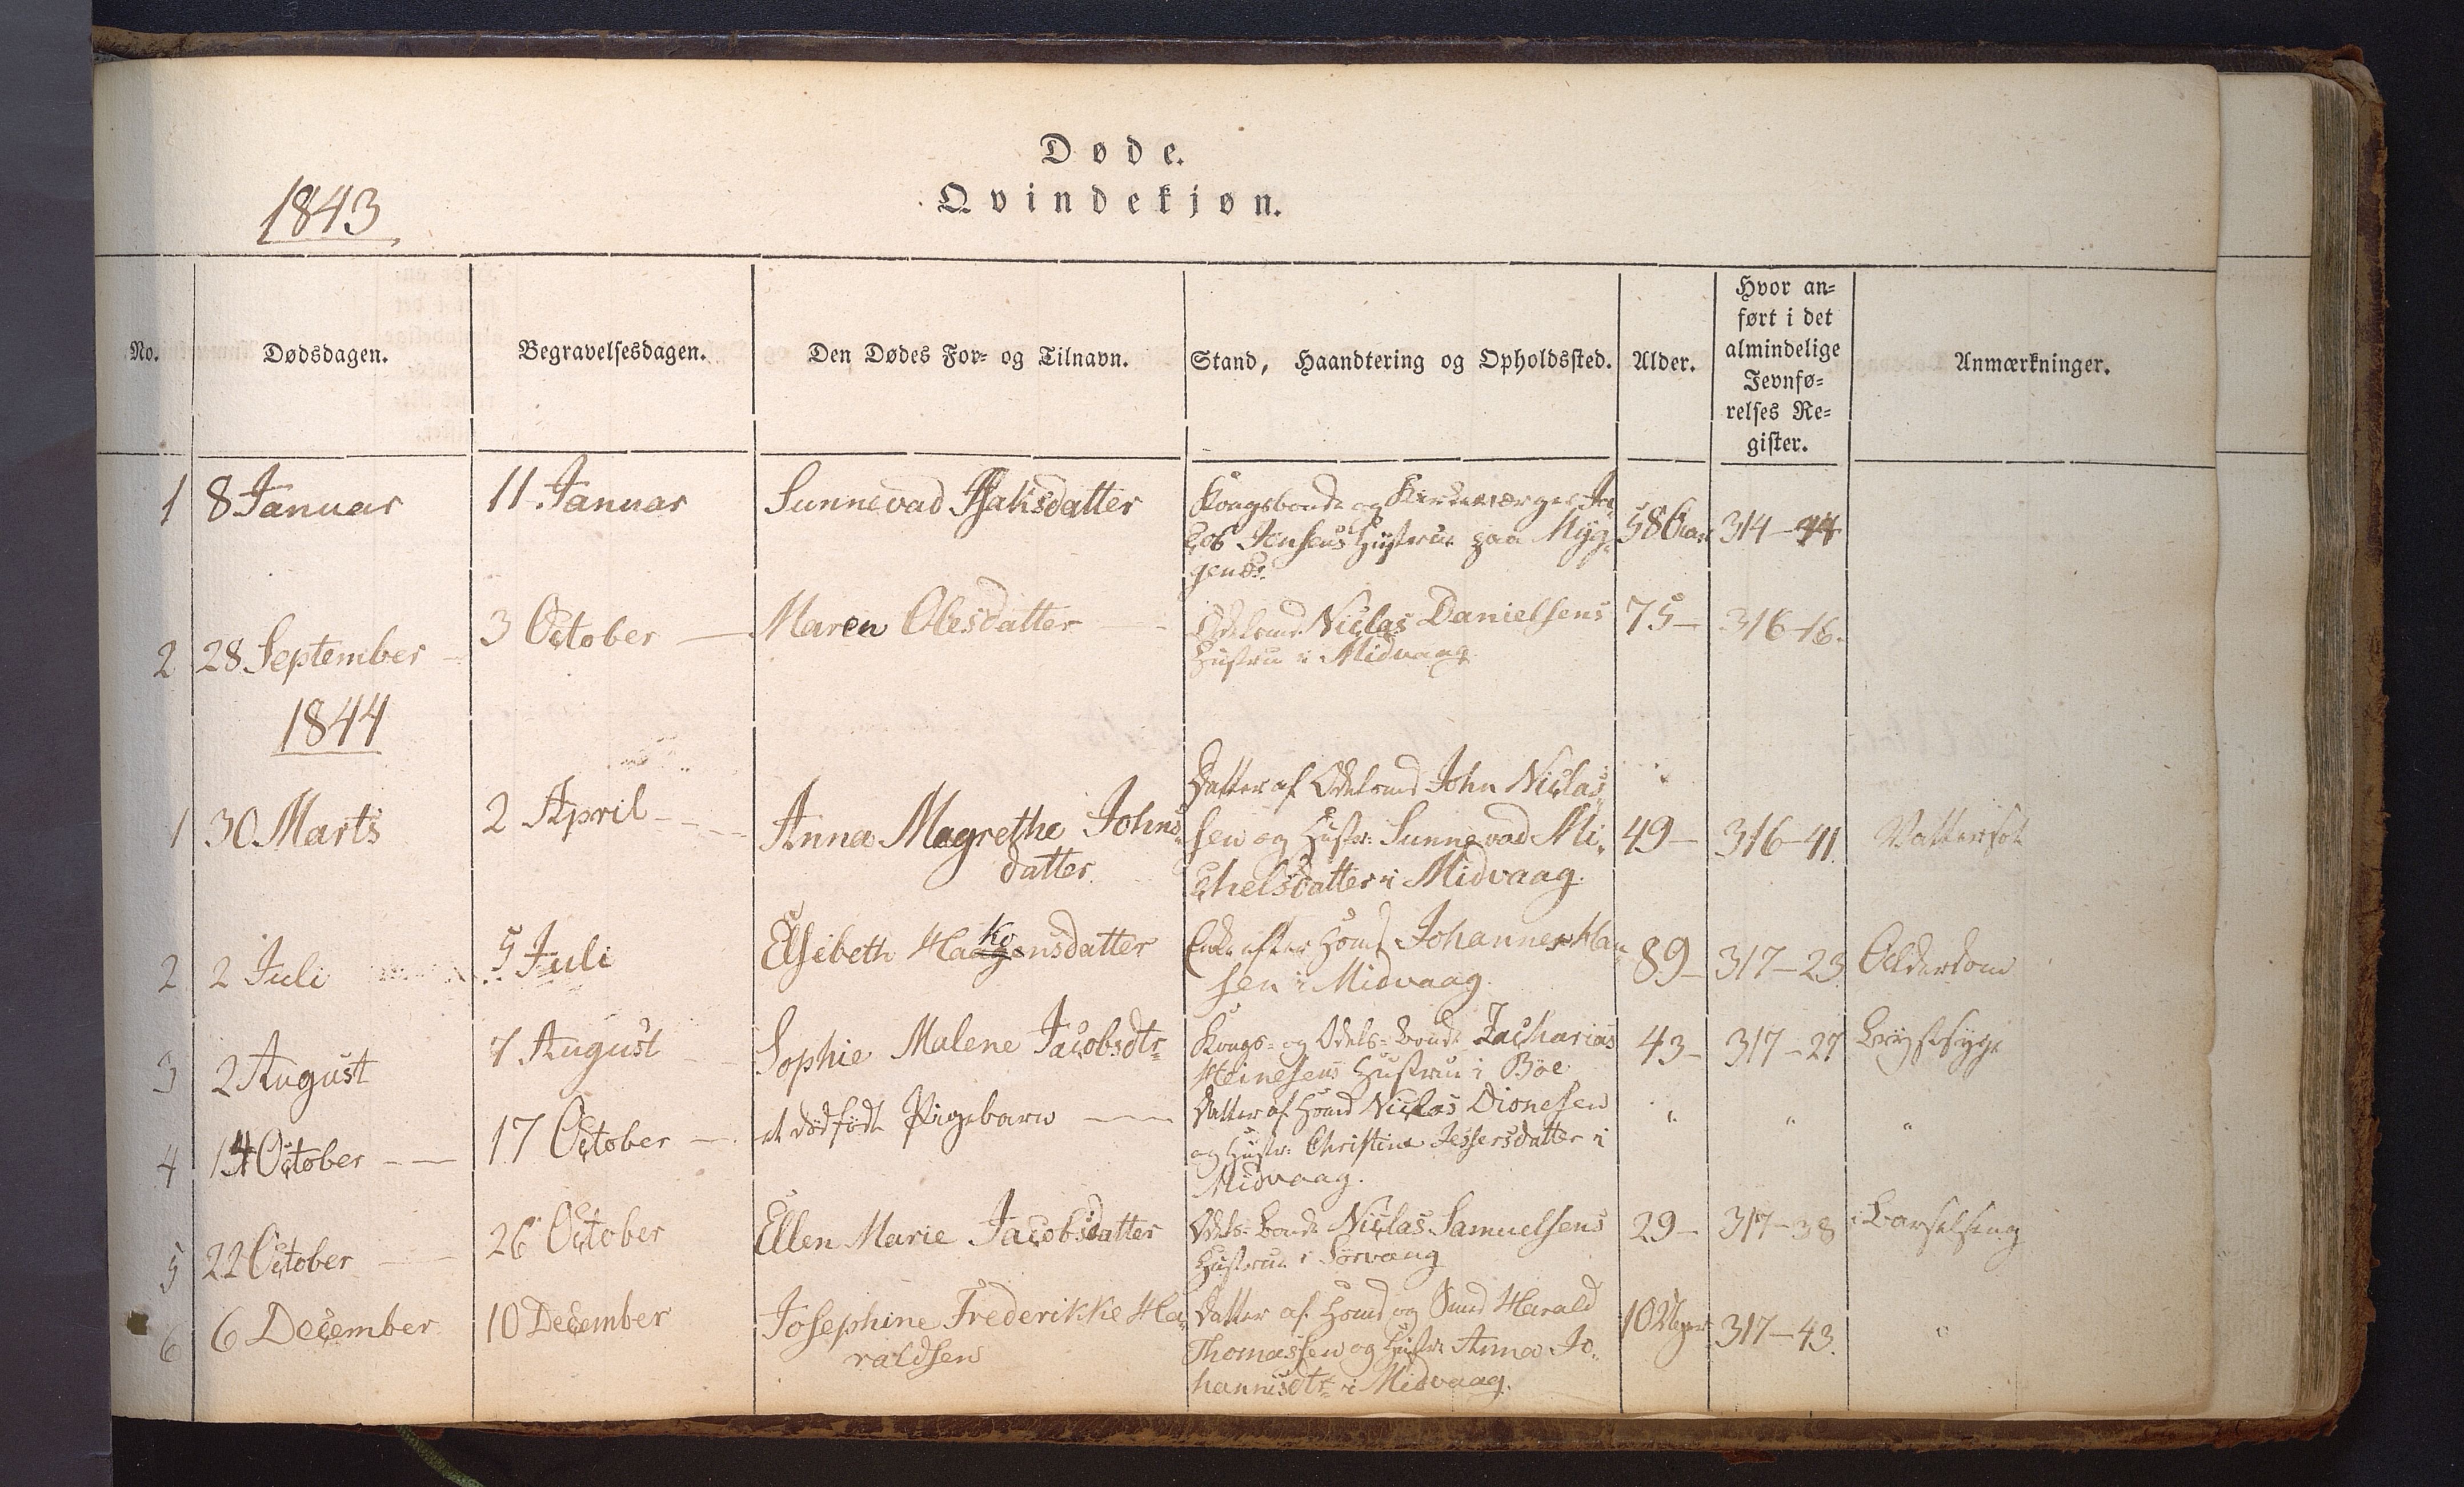 Døde.
Qvindekjøn.
1843
No.
Dødsdagen.
Begravelsesdagen.
Den Dødes For- og Tilnavn.
Stand, Haandtering og Opholdssted.
Alder.
Hvor an-
ført i det
almindelige
Jevnfø-
relses Re-
gister.
Anmærkninger.
1
8 Januar
11 Januar
Sunnevad Isaksdatter
Kongsbonde og Kirkeværger Ja-
cob Jensens Hustrue paa Myg-
genæs
58 Aar
314-44
2
28 September
3 October
Maren Olesdatter
Odelsmd. Niclas Danielsens
Hustru i Midvaag
75
316-16.
1844
1
30 Marts
2 April
Anna Magrethe Johns-
datter
Datter af Odelsmd John Niclas-
sen og Hustr: Sunnevad Mi-
chelsdatter i Midvaag.
49
316-41.
Vattersot
2
2 Juli
5 Juli
Elsebeth Haagensdatter
ko
Enke efter Hsmd Johannes Han-
sen i Midvaag.
89
317-23
Alderdom
3
2 August
7 August
Sophie Malene Jacobsdtr
Kongs- og Odels-bonde Zacharias
Heinesens Hustrue i Böe
43
317-27
Brystsyge
4
14 October
17 October
et dödfödt Pigebarn
Datter af Hsmd Niclas Dionesen
og Hustr: Christine Jessersdatter i
Midvaag.
"
"
"
5
22 October
26 October
Ellen Marie Jacobsdatter
Odels-bonde Niclas Samuelsens
Hustrue i Sörvaag
29
317-38
i Barselseng
6
6 December
10 December
Josephine Frederikke Ha-
raldsen
Datter af Hsmd og Smed Harald
Thomassen og Hustr: Anna Jo-
hannisdtr i Midvaag.
10 Uger
317-43.
"